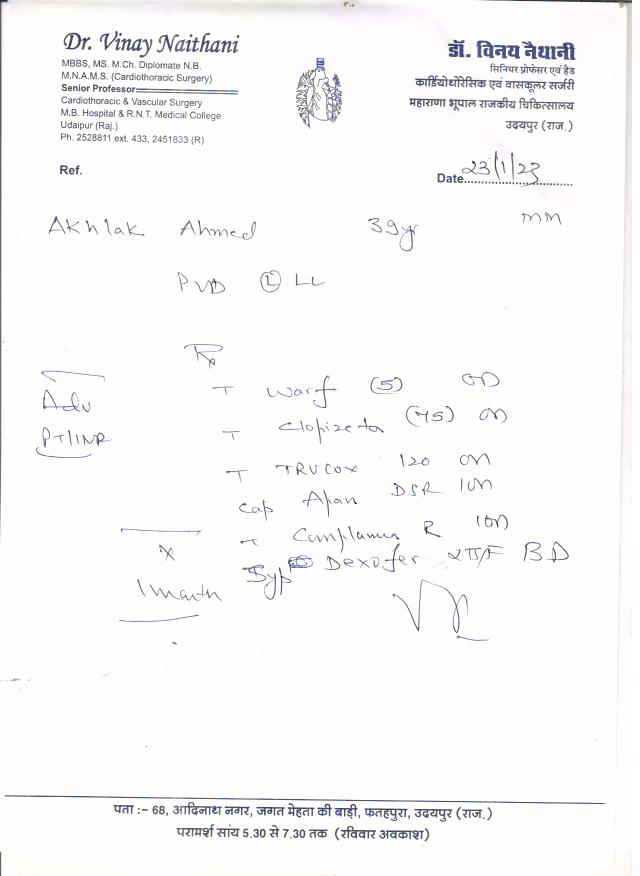 Dr. Vinay Naithani
MBBS, MS. M.Ch. Diplomate N.B.
M.N.A.M.S. (Cardiothoracic Surgery)
Senior Professor
Cardiothoracic & Vascular Surgery
M.B. Hospital & R.N.T. Medical College
Udaipur (Raj.)
Ph. 2528811 ext. 433, 2451833 (R)
डॉ. विनय नैथानी
सिनियर प्रोफेसर एवं हैड
कार्डियोथोरेसिक एवं वासकूलर सर्जरी
महाराणा भूपाल राजकीय चिकित्सालय
उदयपुर (राज.)
Ref.
Date 23/1/23
Akhlak Ahmed 39yr
PVD Ⓛ LL
Rx
Adv
PT/INR
T Warf (5) OD
T (75) ON
T TRUCOX 120 ON
Cap DSR 1ON
T R 1ON
Syp Dexofer BD
x
1 month
पता :– 68, आदिनाथ नगर, जगत मेहता की बाड़ी, फतहपुरा, उदयपुर (राज.)
परामर्श सांय 5.30 से 7.30 तक (रविवार अवकाश)